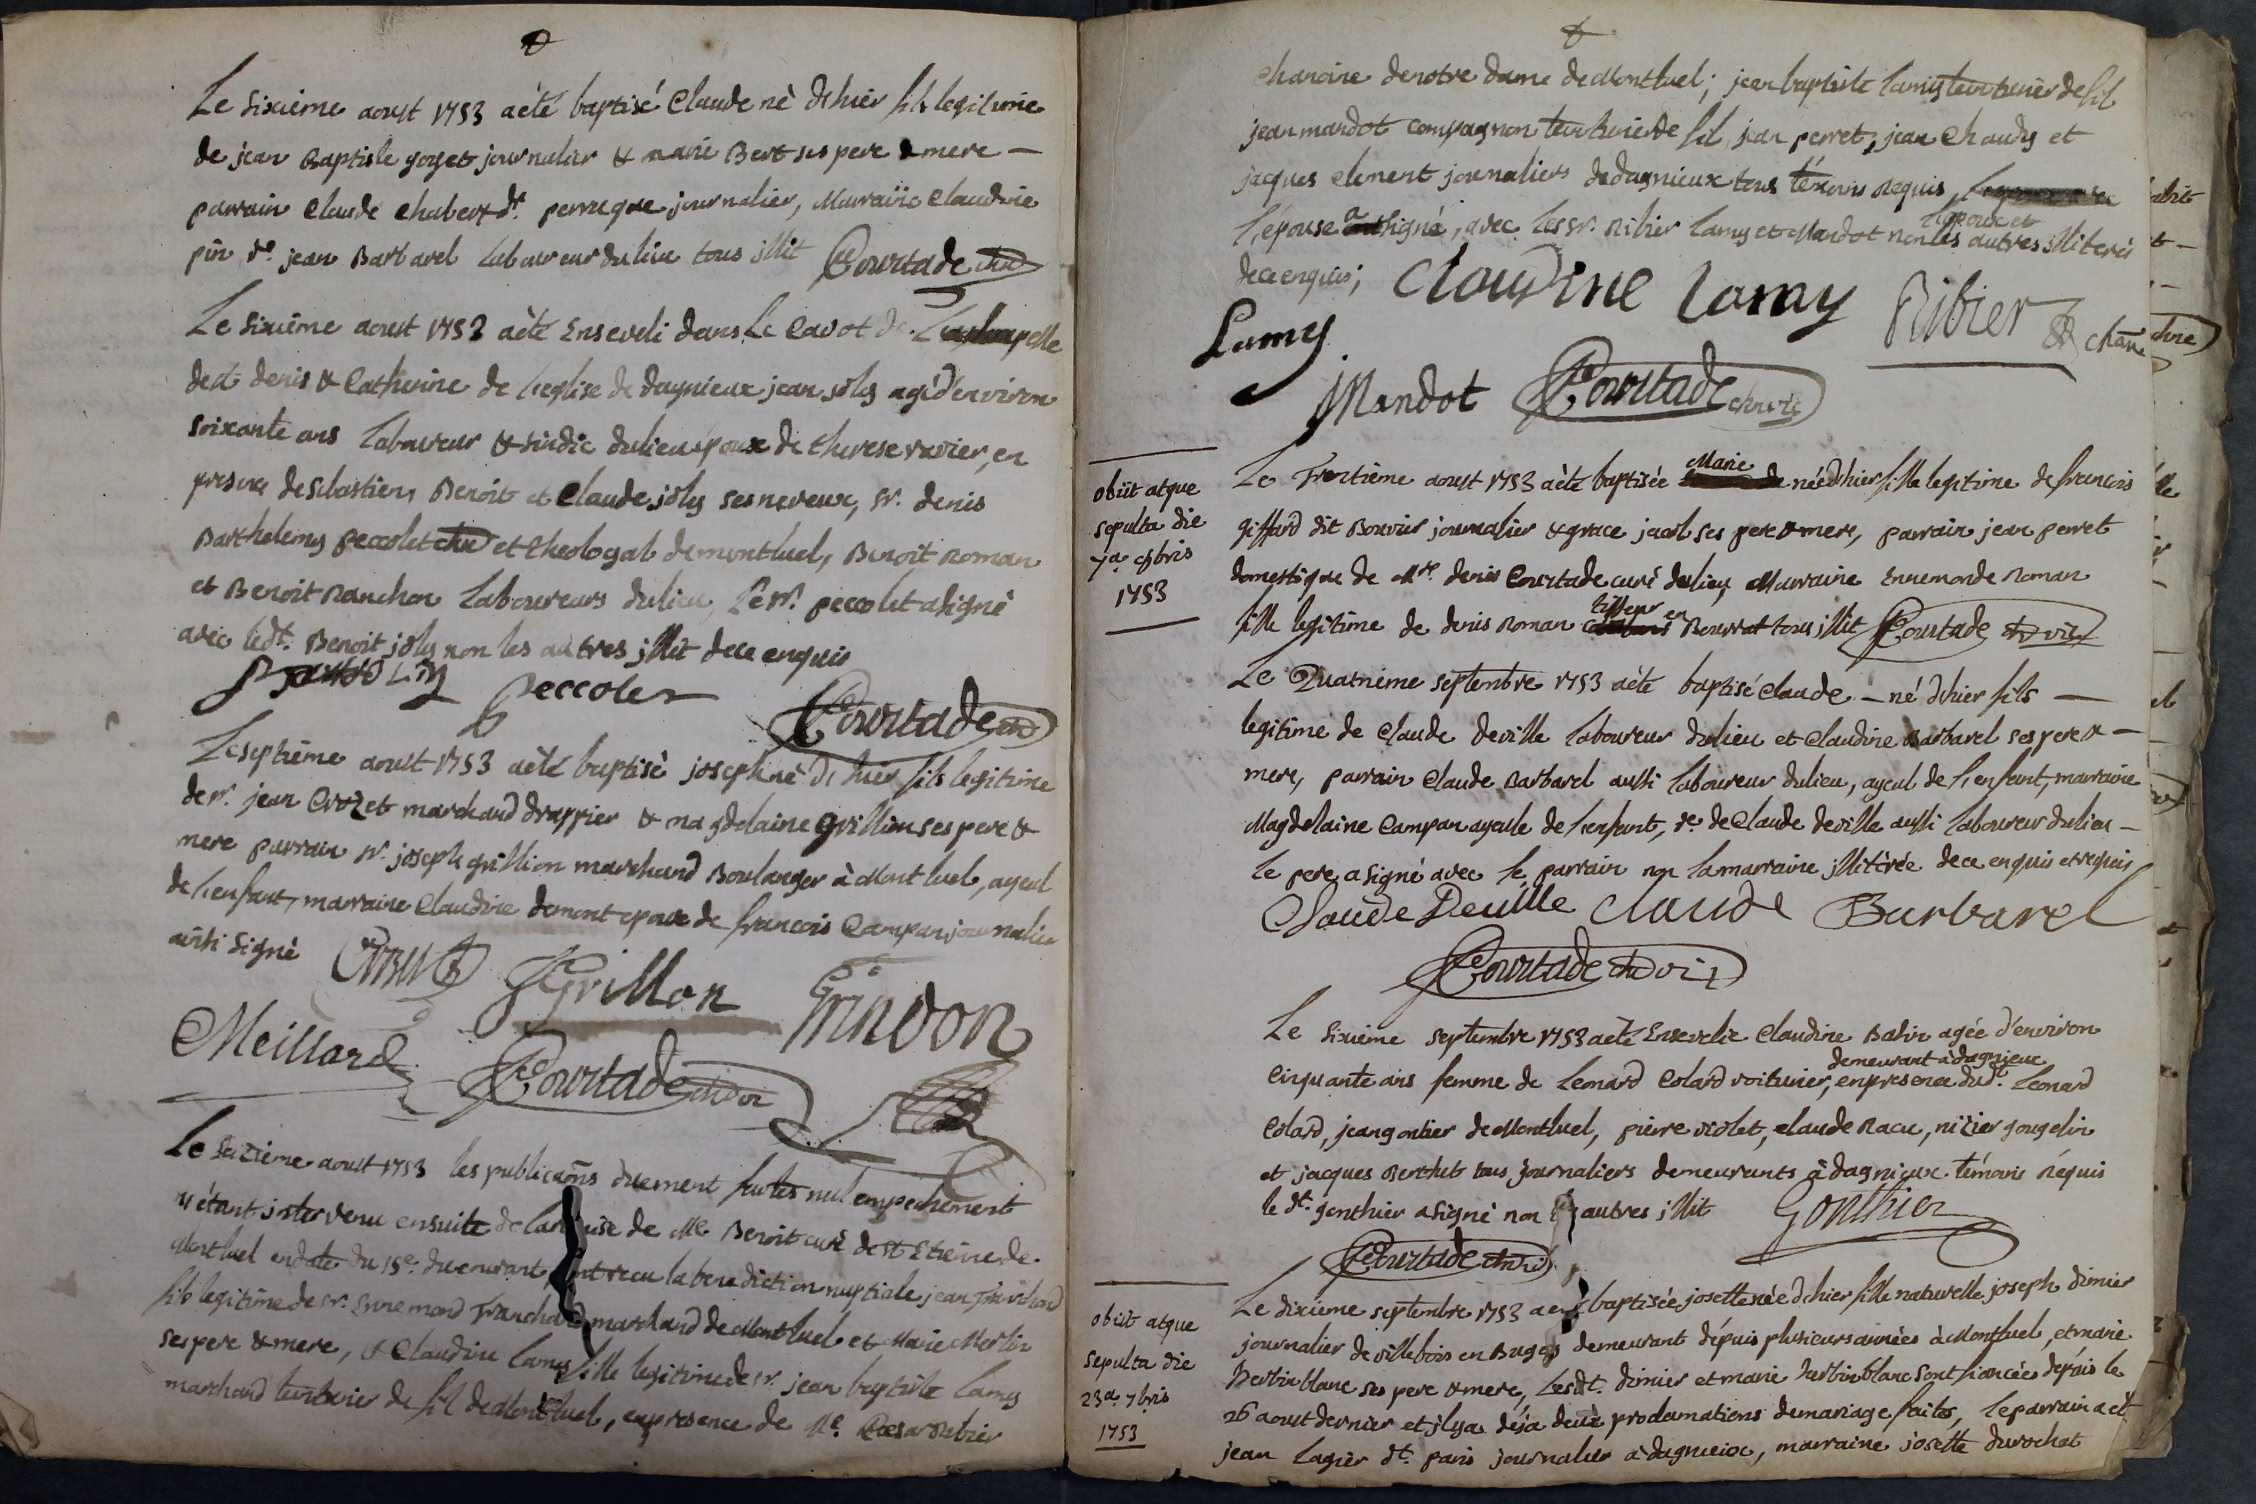 Le sixième aoust 1753 aèté baptisé Claude nè dhier fils legitime
de jean Baptiste goyet journalier & marie Bert ses pere & mere —
parrain Claude Chabert dt. perruque journalier, Marraine Claudine
pin fe. jean Barbarel laboureur du lieu tous illit Courtade curé
Le sixième aoust 1753 aèté Enseveli dans le Cavot de La chapelle
de st denis & Catherine de l'eglise de dagnieux jean joly agé d'environ
soixante ans laboureur & sindic du lieu époux de therese ravier, en
presence de sebastien, Benoit et Claude joly ses neveux, sr. denis
Barthelemy peccolet chne et theologal de montluel, Benoit Roman
et Benoit Ranchon laboureurs du lieu, le sr. peccolet a signé
avec ledt. Benoit joly non les autres illit de ce enquis
Peccolet
Courtade
Le septième aoust 1753 aèté baptisé joseph nè dhier fils legitime
de sr. jean Crozet marchand drappier & magdelaine grillion ses pere &
mere parrain sr. joseph grillion marchand Boulanger à Montluel, ayeul
de l'enfant, marraine Claudine demont epouse de françois Campan journalier
ainsi signé
Grillon Grindon
Meillard Courtade
Le seizième aoust 1753 les publicaons duement faites nul empechement
n'étant intervenu ensuite de la remise de Me Benoit curé de st Etienne de
Montluel en date du 15e. du courant, ont recu la benediction nuptiale jean Franchard
fils legitime de sr. Ennemond Franchard marchand de Montluel et Marie Merlin
ses pere & mere, & Claudine Lamy fille legitime de sr. jean baptiste Lamy
marchand teinturier de fil de Montluel, en presence de Me. Cesar Ribier
chanoine de notre dame de Montluel; jean baptiste Lamy teinturier de fil
jean mandot compagnon teinturier de fil, jean perret, jean Chaudy et
jacques clement journaliers de dagnieux tous témoins requis
l'épouse a signé, avec les sr. Ribier Lamy et Mandot non l'epoux et les autres illiterés
de ce enquis; Claudine Lamy Ribier chane
Lamy
JMandot Courtade
obiit atque
sepulta die
7a. 9bris
1753
Le Trentième aoust 1753 aèté baptisée Marie née dhier fille legitime de francois
giffard dit Bouvier journalier & grace jacob ses pere & mere, parrain jean perret
domestique de Mre. denis Courtade curé du lieu Marraine Ennemonde Roman
fille legitime de denis Roman tisseur en Boussat tous illit Courtade
Le Quatrième septembre 1753 aèté baptisé Claude — né dhier fils —
legitime de Claude deville laboureur du lieu et Claudine Barbarel ses pere & —
mere, parrain Claude Barbarel aussi laboureur du lieu, ayeul de l'enfant, marraine
Magdelaine Campan ayeulle de l'enfant, fe. de Claude deville aussi laboureur du lieu —
le pere a signé avec le parrain non la marraine illitérée de ce enquis et requis
Claude Deuille Claude Barbarel
Courtade
Le sixième septembre 1753 aèté Ensevelie Claudine Babin agée d'environ
cinquante ans femme de Leonard Colard voiturier, demeurant à dagnieux en presence dudt. Leonard
Colard, jean gontier de Montluel, pierre violet, claude Racu, nizier gougelin
et jacques Berthet tous journaliers demeurants à dagnieux témoins requis
le dt. gonthier a signé non les autres illit Gonthier
Courtade
obiit atque
sepulta die
23a. 7bris
1753
Le dixième septembre 1753 a eté baptisée josette née dhier fille naturelle joseph dimier
journalier de villebois en Bugey demeurant dépuis plusieurs années à Montluel, et marie
Herbinblanc ses pere & mere, lesdt. dimier et marie herbinblanc sont fiancées dépuis le
26 aoust dernier et il y a déja deux proclamations de mariage faites, le parrain a èté
jean Lagier dt. paris journalier à dagnieux, marraine josette durochat